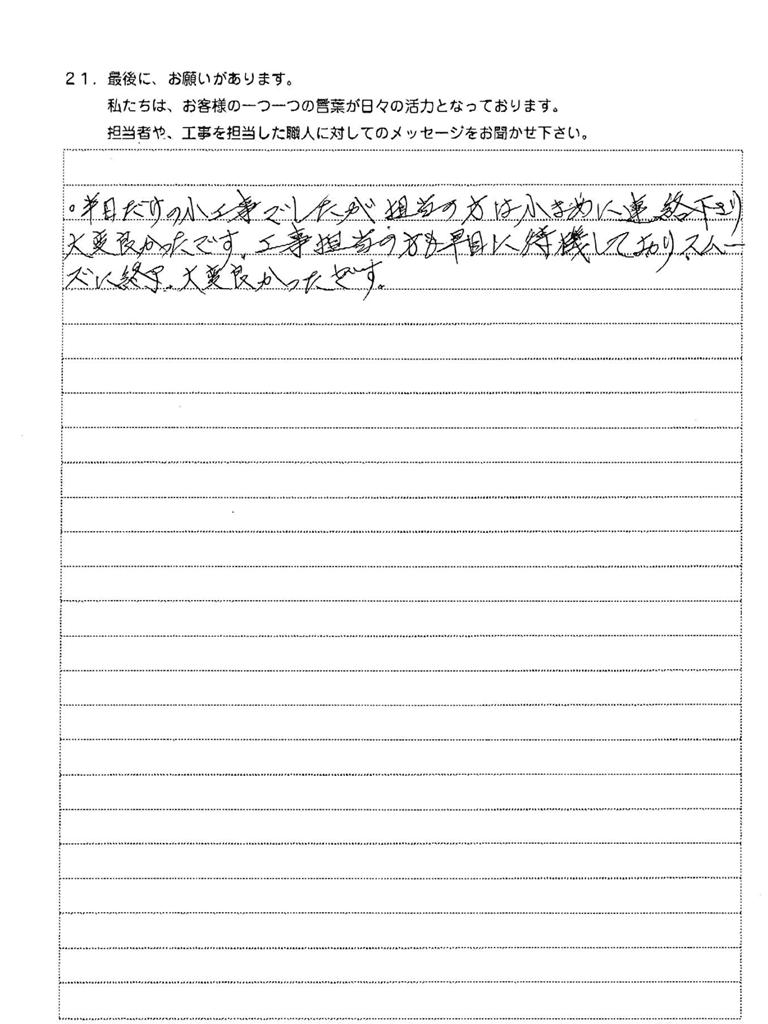 21．最後に、お願いがあります。
私たちは、お客様の一つ一つの言葉が日々の活力となっております。
担当者や、工事を担当した職人に対してのメッセージをお聞かせ下さい。
・半日だけの小工事でしたが、担当の方は小まめに連絡下さり
大変良かったです。工事担当の方も早目に待機しており、スムー
ズに終了。大変良かったです。